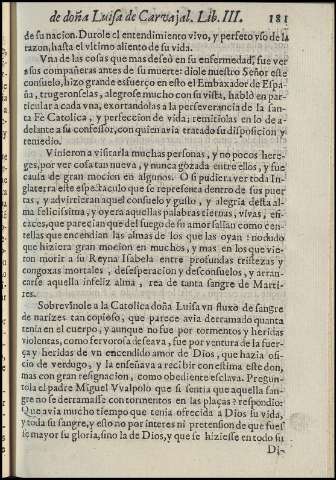 de doña Luisa de Carvajal. Lib. III. 181
de su nacion. Durole el entendimiento vivo, y perfeto vso de la
razon, hasta el vltimo aliento de su vida.
Vna de las cosas que mas deseò en su enfermedad, fue ver
a sus compañeras antes de su muerte: diole nuestro Señor este
consuelo, hizo grande esfuerço en ello el Embaxador de Espa-
ña, trugeronselas, alegrose mucho con su vista, hablò en par-
ticular a cada vna, exortandolas a la perseverancia de la san-
ta Fè Catolica, y perfeccion de vida; remitiolas en lo de a-
delante a su confessor, con quien avia tratado su disposicion y
remedio.
Vinieron a visitarla muchas personas, y no pocos here-
ges, por ver cosa tan nueva, y nunca gozada entre ellos, y fue
causa de gran mocion en algunos. O si pudiera ver toda In-
glaterra este espetaculo que se representa dentro de sus puer
tas, y advirtieran aquel consuelo y gusto, y alegria desta al-
ma felicissima, y oyera aquellas palabras tiernas, vivas, efi-
caces, que parecian que del fuego de su amor salian como cen-
tellas que encendian las almas de los que las oyan: no dudo
que hiziera gran mocion en muchos, y mas en los que vie-
ron morir a su Reyna Isabela entre profundas tristezas y
congoxas mortales, desesperacion y desconsuelos, y arran-
carse aquella infeliz alma, rea de tanta sangre de Marti-
res.
Sobrevinole a la Catolica doña Luisa vn fluxo de sangre
de narizes tan copioso, que parece avia derramado quanta
tenia en el cuerpo, y aunque no fue por tormentos y heridas
violentas, como fervorosa deseava, fue por ventura de la fuer-
ça y heridas de vn encendido amor de Dios, que hazia ofi-
cio de verdugo, y la enseñava a recibir con estima este don,
mas con gran resignacion, como obediente esclava. Pregun-
tola el padre Miguel Vvalpolo que si sentia que aquella san-
gre no se derramasse con tormentos en las plaças? respondio:
Que avia mucho tiempo que tenia ofrecida a Dios su vida,
y toda su sangre, y esto no por interes ni pretension de que fues
se mayor su gloria, sino la de Dios, y que se hiziesse en todo su
Di-